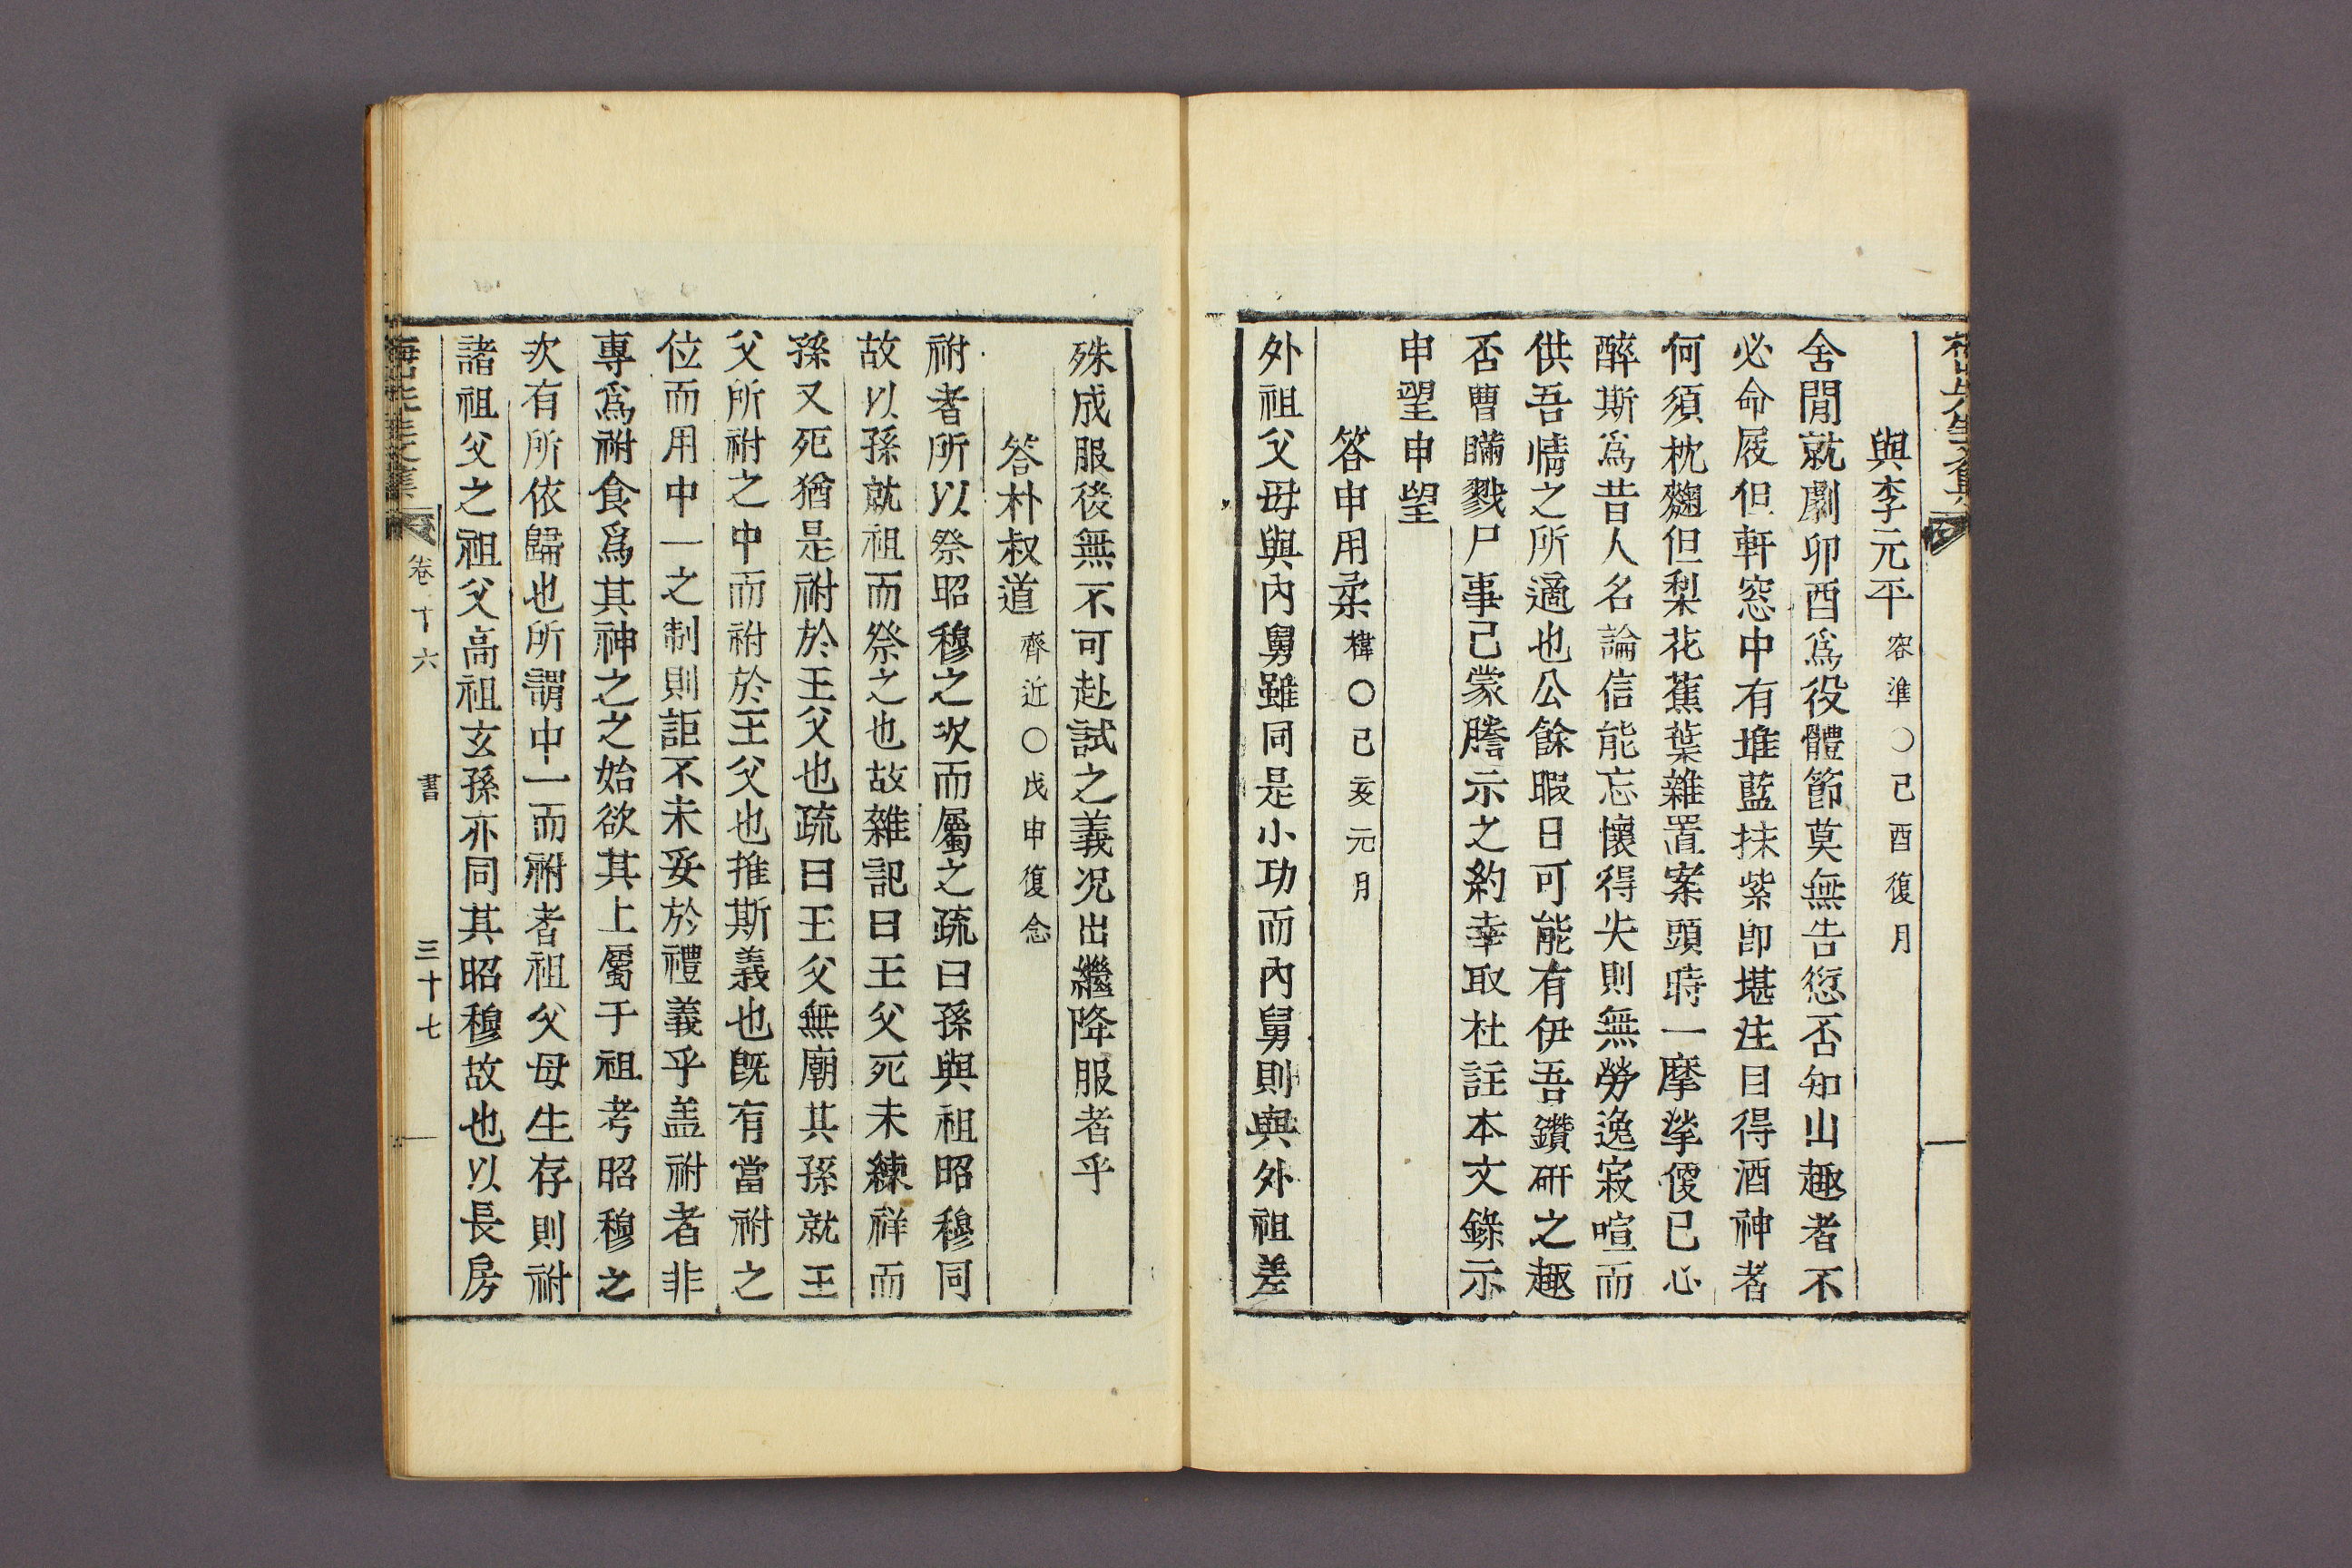 與李元平 容準○己酉復月
舍閒就劇卯酉爲役體節莫無告愆否知山趣者不
必命屐但軒窓中有堆藍抹紫卽堪注目得酒神者
何須枕麴但梨花蕉葉雜置案頭時一摩挲傻已心
醉斯爲昔人名論信能忘懷得失則無勞逸寂喧而
供吾情之所適也公餘暇日可能有伊吾鑽硏之趣
否曹瞞戮尸事己蒙謄示之約幸取杜註本文錄示
申望申望
答申用柔 樟○己亥元月
外祖父母與內舅雖同是小功而內舅則與外祖差
殊成服後無不可赴試之義况出繼降服者乎
答朴叔道 齊近○戊申復念
祔者所以祭昭穆之次而屬之疏曰孫與祖昭穆同
故以孫就祖而祭之也故雜記曰王父死未練祥而
孫又死猶是祔於王父也疏曰王父無廟其孫就王
父所祔之中而祔於王父也推斯義也旣有當祔之
位而用中一之制則詎不未妥於禮義乎盖祔者非
專爲祔食爲其神之之始欲其上屬于祖考昭穆之
次有所依歸也所謂中一而祔者祖父母生存則祔
諸祖父之祖父高祖玄孫亦同其昭穆故也以長房
卷十六 書 三十七